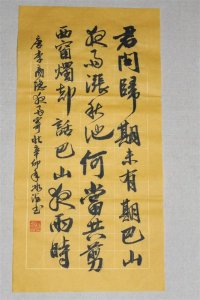 君問歸期未有期巴山
夜雨漲秋池何當共剪
西窗燭却話巴山夜雨時
唐李商隱夜雨寄北辛卯年
书